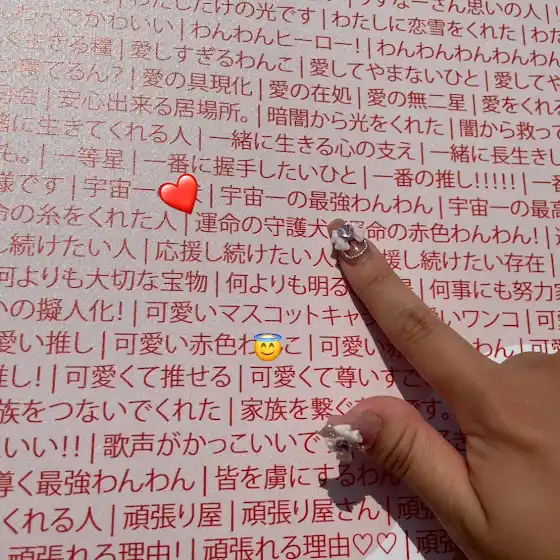 わたしだけの光です | わたしに恋雪をくれた | わた
かわいい | わんわんヒーロー! | わんわんわんわんわん
く生きる糧 | 愛しすぎるわんこ | 愛してやまないひと | 愛してや
てるん? | 愛の具現化 | 愛の在処 | 愛の無二星 | 愛をくれ
安心出来る居場所。 | 暗闇から光をくれた | 闇から救っ
緒に生きてくれる人 | 一緒に生きる心の支え | 一緒に長生きし
も。 | 一等星 | 一番に握手したいひと | 一番の推し!!!!! | 一番
様です | 宇宙一 | 宇宙一の最強わんわん | 宇宙一の最高
命の糸をくれた人 | 運命の守護犬 | 運命の赤色わんわん! | 運
し続けたい人 | 応援し続けたい人 | 応援し続けたい存在 |
何よりも大切な宝物 | 何よりも明る | 何事にも努力家
いの擬人化! | 可愛いマスコットキャ | 可愛いワンコ | 可
愛い推し | 可愛い赤色わんこ | 可愛い わん | 可
推し! | 可愛くて推せる | 可愛くて尊いすご
族をつないでくれた | 家族を繋ぐ です。
いい!! | 歌声がかっこいいで
尊く最強わんわん | 皆を虜にするわん
くれる人 | 頑張り屋 | 頑張り屋さん | 頑張
頑張れる理由! | 頑張れる理由♡♡ | 頑張